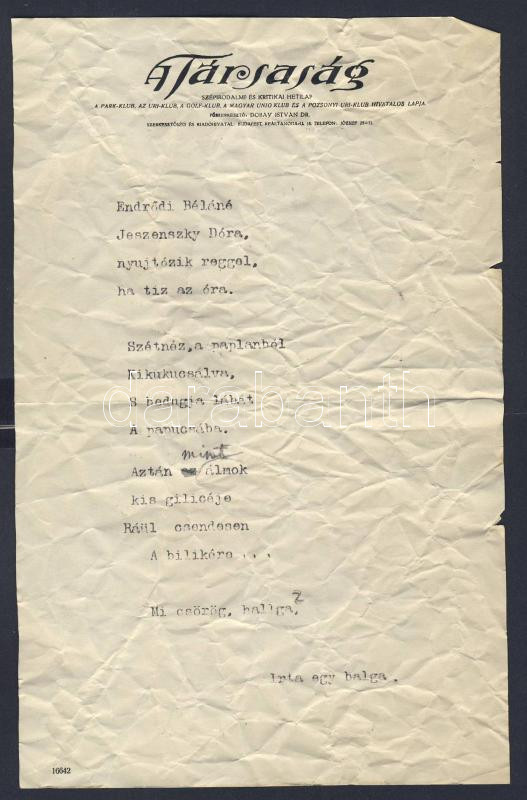 A Társaság
SZÉPIRODALMI ÉS KRITIKAI HETILAP
A PARK-KLUB, AZ URI-KLUB, A GOLF-KLUB, A MAGYAR UNIO KLUB ÉS A POZSONYI URI-KLUB HIVATALOS LAPJA
FŐSZERKESZTŐ: DOBAY ISTVÁN DR.
SZERKESZTŐSÉG ÉS KIADÓHIVATAL: BUDAPEST, REÁLTANODA-U. TELEFON: JÓZSEF
Endrődi Béláné
Jeszenszky Dóra,
nyujtózik reggel,
ha tiz az óra.
Szétnéz,a paplanból
Kikukucsálva,
S bedugja lábát
A papucsába.
mint
Aztán álmok
kis gilicéje
Ráül csendesen
A bilikére ...
Mi csörög, hallga?
Irta egy balga.
16642
darabanth